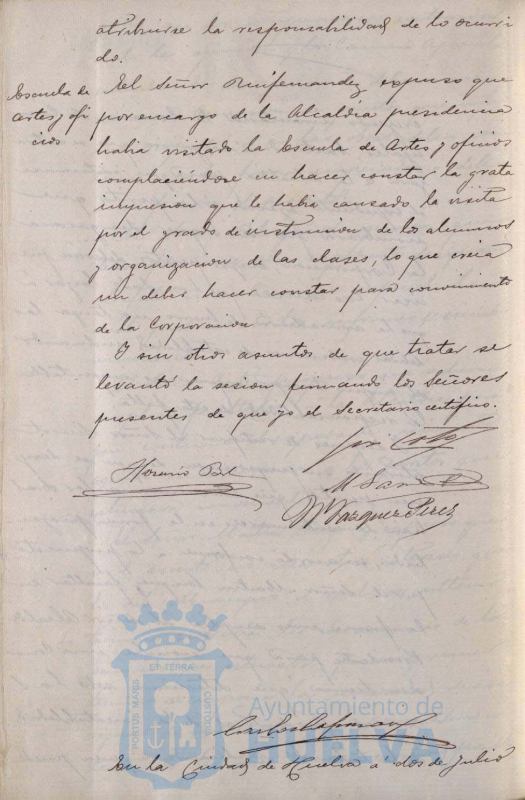 atribuirse la responsabilidad de lo ocurri
do.
Escuela de
artes y ofi
cios
El Señor Ruifernandez expuso que
por encargo de la Alcaldia presidencia
habia visitado la Escuela de Artes y oficios
complaciéndose en hacer constar la grata
impresion que le habia causado la visita
por el grado de instruccion de los alumnos
y organizacion de las clases, lo que creia
un deber hacer constar para conocimiento
de la Corporacion
Y sin otros asuntos de que tratar se
levantó la sesion firmando los Señores
presentes de que yo el Secretario certifico.
Horacio Bel
M Vazquez Perez
PORTUS MARIS
ET TERRÆ
CUSTODIA
Ayuntamiento de
HUELVA
En la Ciudad de Huelva a dos de Julio